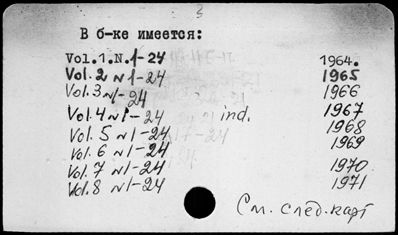 3
В б-ке имеется:
Vol.1.N.1-24 1964.
Vol.2 N1-24 1965
Vol.3 N1-24 1966
Vol.4 N1-24 ind. 1967
Vol.5 N1-24 1968
Vol.6 N1-24 1969
Vol.7 N1-24 1970
Vol.8 N1-24 1971
См. след. карт